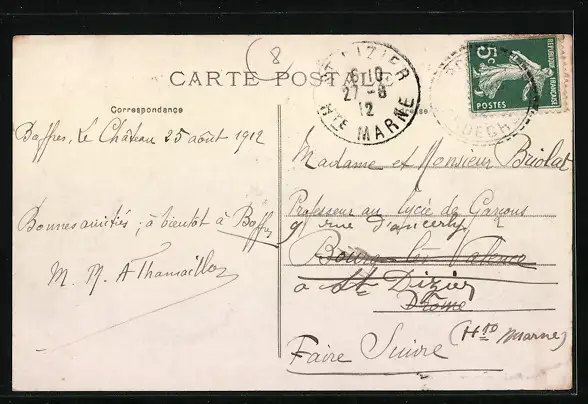 8
CARTE POSTALE
Correspondance
Boffres, Le Château 25 août 1912
Bonnes amitiés, à bientôt à Boffres
M. M. A
DIZIER
6-10
27-8
12
Hte MARNE
5c
REPUBLIQUE FRANÇAISE
POSTES
Madame et Monsieur Briolat
Professeur au Lycée de Garçons
9 rue d'
Bourg-lès-Valence
à St Dizier
Drôme
(Hte Marne)
Faire Suivre